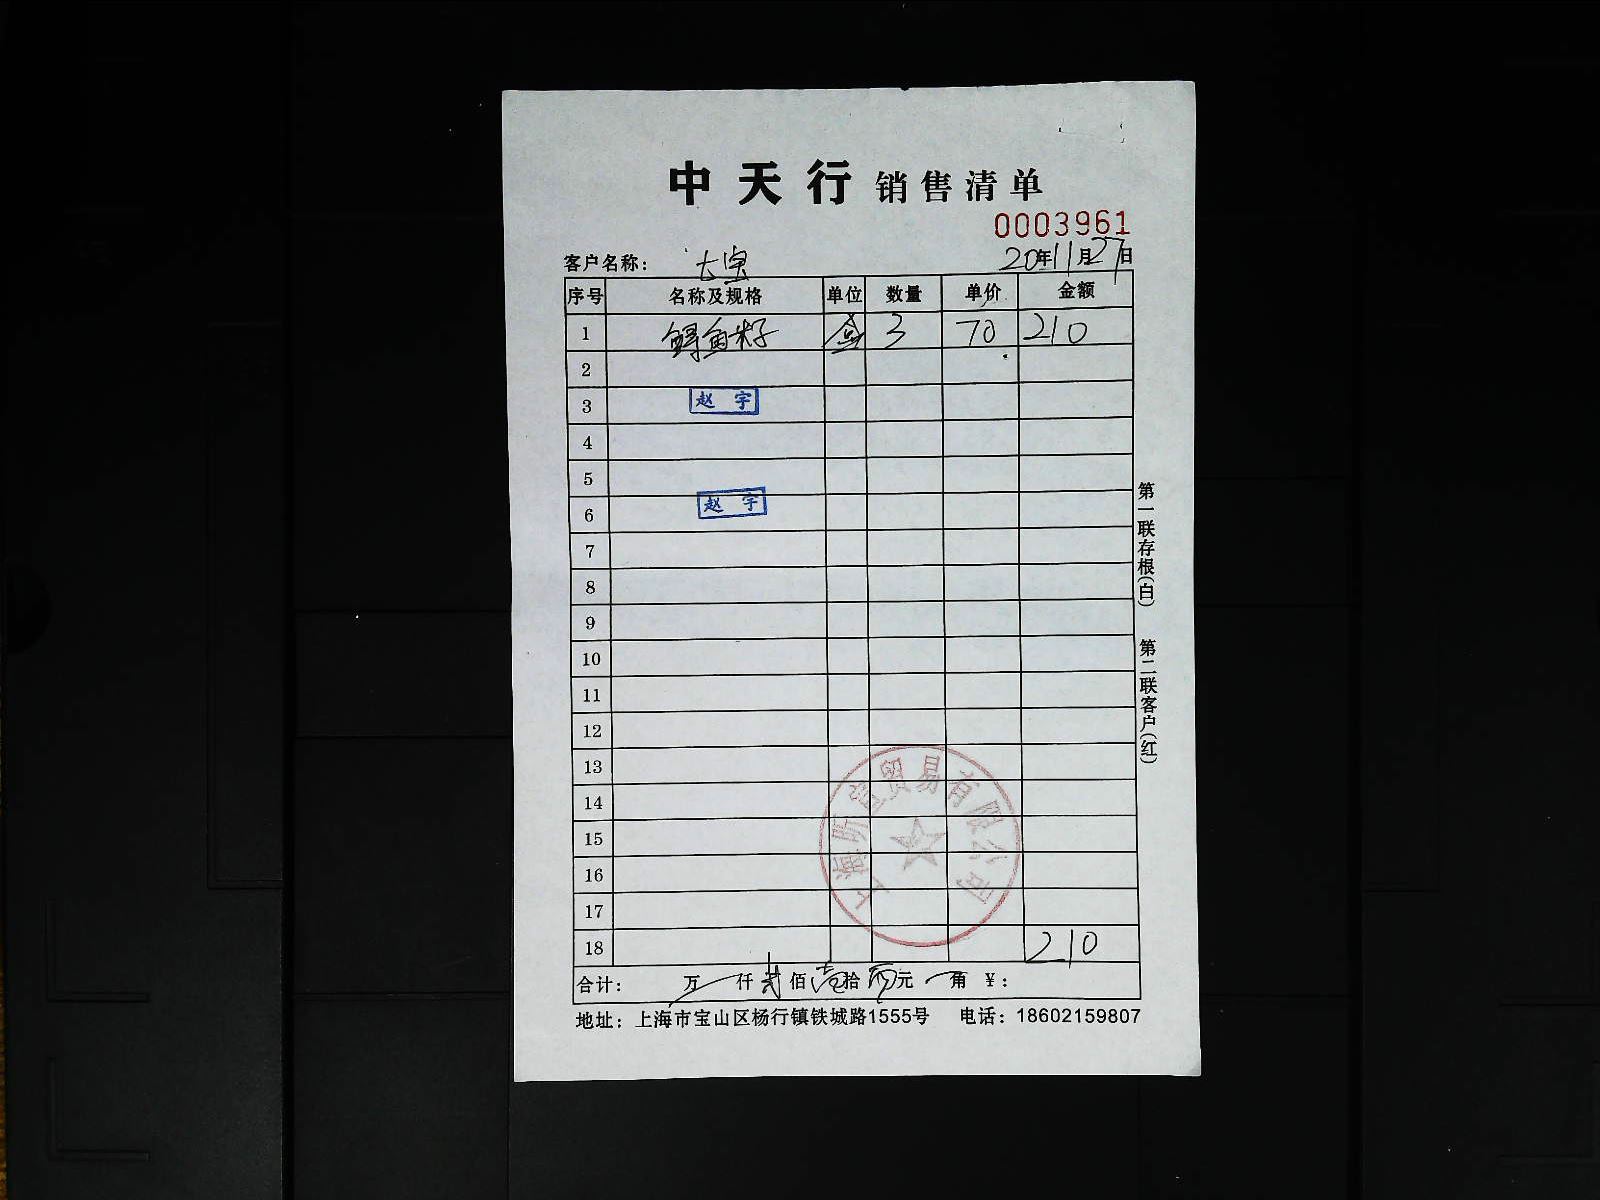 中天行 销售清单
0003961
客户名称： 大宝 20年11月27日
序号 名称及规格 单位 数量 单价 金额
1 鲟鱼籽 盒 3 70 210
2
3 赵宇
4
5
6 赵宇
7
8
9
10
11
12
13
14
15
16
17
18 210
合计： 万 仟 贰 佰 壹 拾 元 角 ¥：
地址：上海市宝山区杨行镇铁城路1555号 电话：18602159807
第一联存根(白) 第二联客户(红)
上海 贸易有限公司